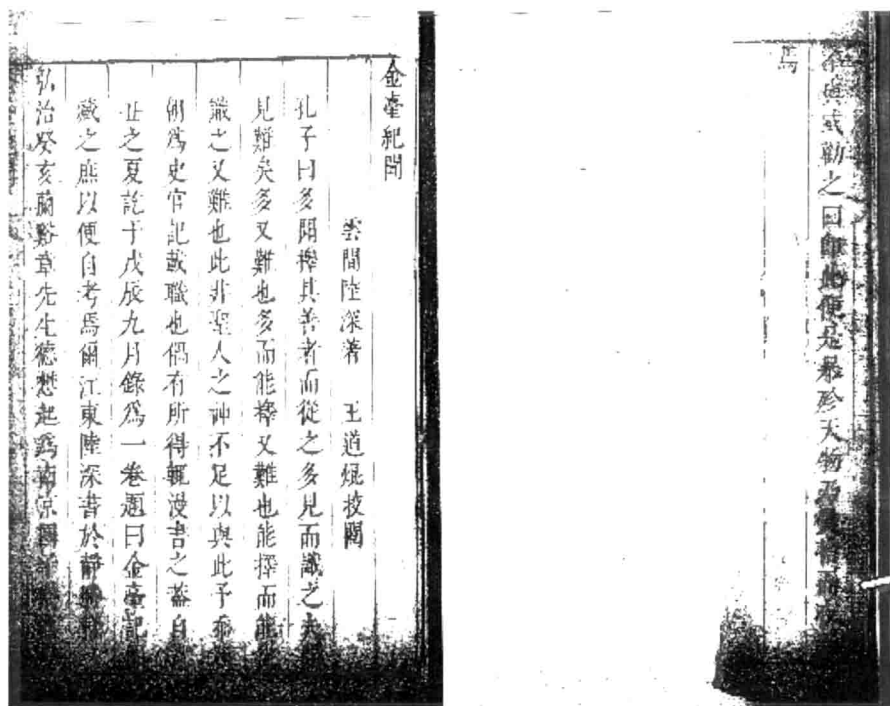 不與或勸之曰飽此便是暴殄天物乃
焉
金臺紀聞
雲間陸深著 王道焜挍閱
孔子曰多聞擇其善者而從之多見而識之夫
見難矣多又難也多而能擇又難也能擇而能
識之又難也此非聖人之神不足以與此予忝
備爲史官記載職也偶有所得輒漫書之蓋自
丑之夏訖于戊辰九月錄爲一卷題曰金臺紀
藏之庶以便自考焉爾江東陸深書於靜
弘治癸亥蘭谿章先生德懋起爲南京國子